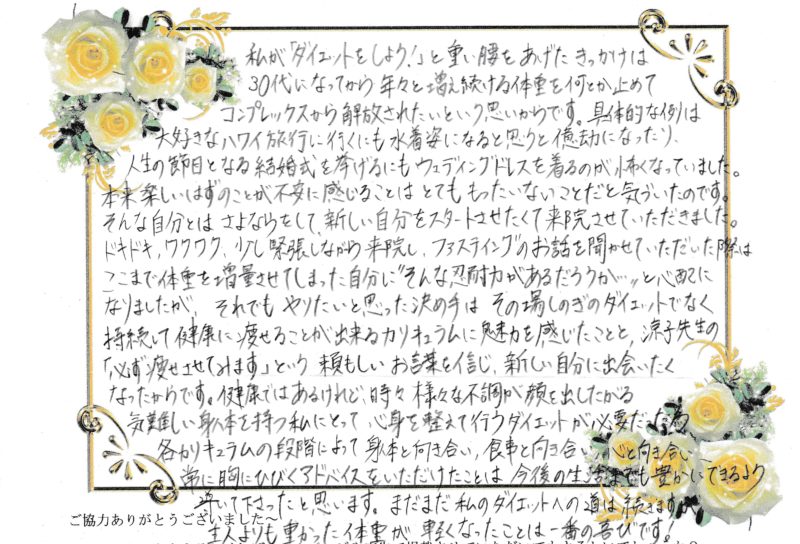 私が「ダイエットをしよう!」と重い腰をあげたきっかけは
30代になってから年々と増え続ける体重を何とか止めて
コンプレックスから解放されたいという思いからです。具体的な例は
大好きなハワイ旅行に行くにも水着姿になると思うと億劫になったり、
人生の節目となる結婚式を挙げるにもウェディングドレスを着るのが怖くなっていました。
本来楽しいはずのことが不安に感じることはとてももったいないことだと気づいたのです。
そんな自分とはさよならをして、新しい自分をスタートさせたくて来院させていただきました。
ドキドキ、ワクワク、少し緊張しながら来院し、ファスティングのお話を聞かせていただいた際は
ここまで体重を増量させてしまった自分に"そんな忍耐力があるだろうか…"と心配に
なりましたが、それでもやりたいと思った決め手はその場しのぎのダイエットでなく
持続して健康に痩せることが出来るカリキュラムに魅力を感じたことと、涼子先生の
「必ず痩せさせてみます」という頼もしいお言葉を信じ、新しい自分に出会いたく
なったからです。健康ではあるけれど時々様々な不調が顔を出したがる
気難しい身体を持つ私にとって心身を整えて行うダイエットが必要だった為
各カリキュラムの段階によって身体と向き合い、食事と向き合い、心と向き合い
常に胸にひびくアドバイスをいただけたことは今後の生活までも豊かにできるよう
導いて下さったと思います。まだまだ私のダイエットへの道は続きますが
ご協力ありがとうございました~
主人よりも重かった体重が軽くなったことは一番の喜びです!